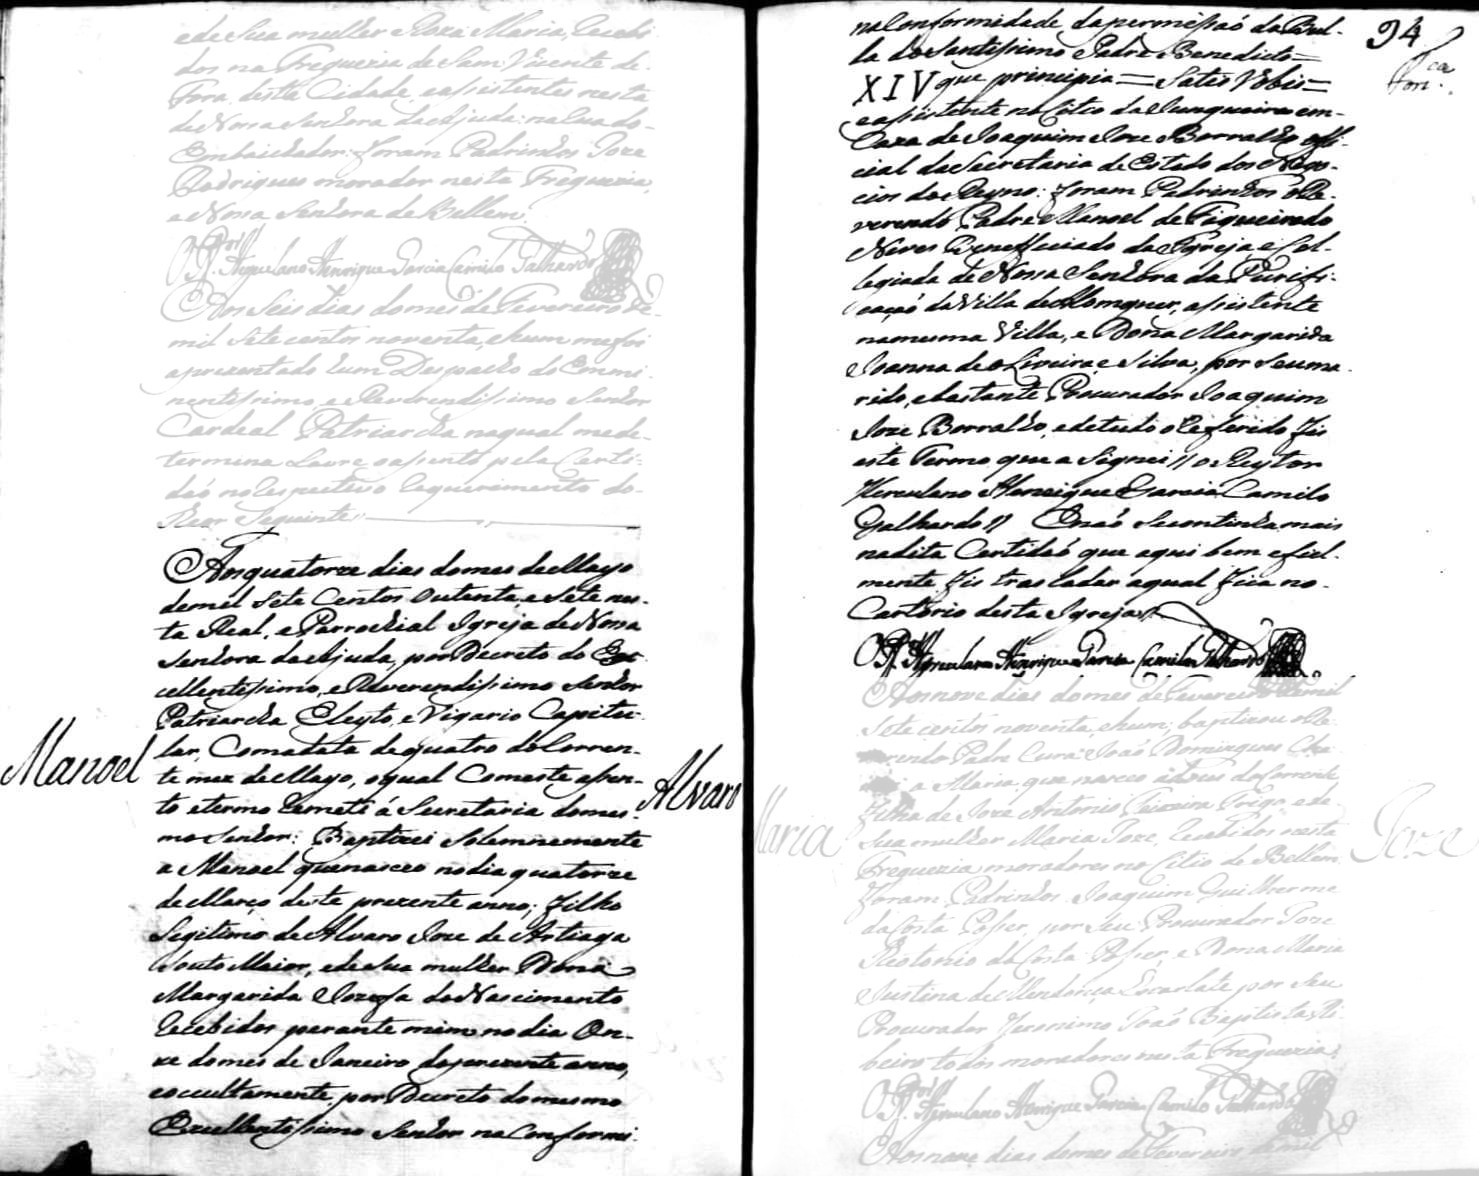 e de Sua mulher Roza Maria, Recebi-
dos na Freguezia de Sam Vicente de-
Fora desta Cidade, e assistentes nesta
de Nossa Senhora da Ajuda: na Rua do-
Embaichador: foram Padrinhos Joze
Rodrigues morador nesta Freguezia,
e Nossa Senhora de Bellem.
O P.or Herculano Henrique Garcia Camilo Galhardo
Aos Seis dias do mes de Fevereiro de-
mil Sete centos noventa, e hum me foi
aprezentado hum Despacho do Emmi-
nentissimo, e Reverendissimo Senhor
Cardeal Patriarcha no qual me de-
termina Lavre o assento pela Certi-
daó no Respectivo Requerimento do-
Theor Seguinte:
Aos quatorze dias do mes de Mayo
de mil Sete Centos Outenta, e Sete nes-
ta Real, e Parrochial Igreja de Nossa
Senhora da Ajuda, por Decreto do Ex-
cellentissimo, e Reverendissimo Senhor
Patriarcha Eleyto, e Vigario Capitu-
lar, Com a data de quatro do Corren-
te mez de Mayo, o qual Com este assen-
to e termo Remeti á Secretaria do mes-
mo Senhor: Baptizei Solemnemente
Manoel
Alvaro
a Manoel que nasceo no dia quatorze
de Março deste prezente anno; filho
Legitimo de Alvaro Joze de Artiaga
Souto Maior, e de Sua mulher Dona
Margarida Jozefa do Nascimento
Recebidos perante mim no dia On-
ze do mes de Janeiro do prezente anno,
e occultamente por Decreto do mesmo
Excellentissimo Senhor na Conformi-
94
na Conformidade da permissaó da Bul-
la do Santissimo Padre Benedicto =
XIV que principia = Satis Vobis =
e assistente no Citio da Junqueira em-
Caza de Joaquim Joze Borralho offi-
cial da Secretaria de Estado dos Nego-
cios do Reyno: foram Padrinhos o Re-
verendo Padre Manoel de Figueiredo
Neves Beneficiado da Igreja e Col-
legiada de Nossa Senhora da Purifi-
caçaó da Villa de Alomquer, assistente
na mesma Villa, e Dona Margarida
Joanna de Oliveira e Silva, por Seu ma-
rido, e bastante Procurador Joaquim
Joze Borralho, e de tudo o Referido fis
este Termo que a Signei // o Reytor
Herculano Henrique Garcia Camilo
Galhardo // E naó Se continha mais
na dita Certidaó que aqui bem e fiel-
mente fis trasladar a qual fica no-
Cartorio desta Igreja
O P.or Herculano Henrique Garcia Camilo Galhardo
Aos nove dias do mes de Fevereiro de mil
Sete centos noventa, e hum, baptizou o Re-
verendo Padre Cura Joaó Domingues Cha-
a Maria que nasceo a do Corrente
Filha de Joze Antonio Teixeira Trigo, e de
Maria
Joze
Sua mulher Maria Joze, Recebidos nesta
Freguezia moradores no Citio de Bellem
foram Padrinhos Joaquim Guilherme
da Costa Posser, por Seu Procurador Joze
Theotonio da Costa Posser, e Dona Maria
Justina de Mendonça por Seu
Procurador Jeronimo Joaó Baptista Ri-
beiro todos moradores nesta Freguezia.
O P.or Herculano Henrique Garcia Camilo Galhardo
Aos nove dias do mes de Fevereiro de mil